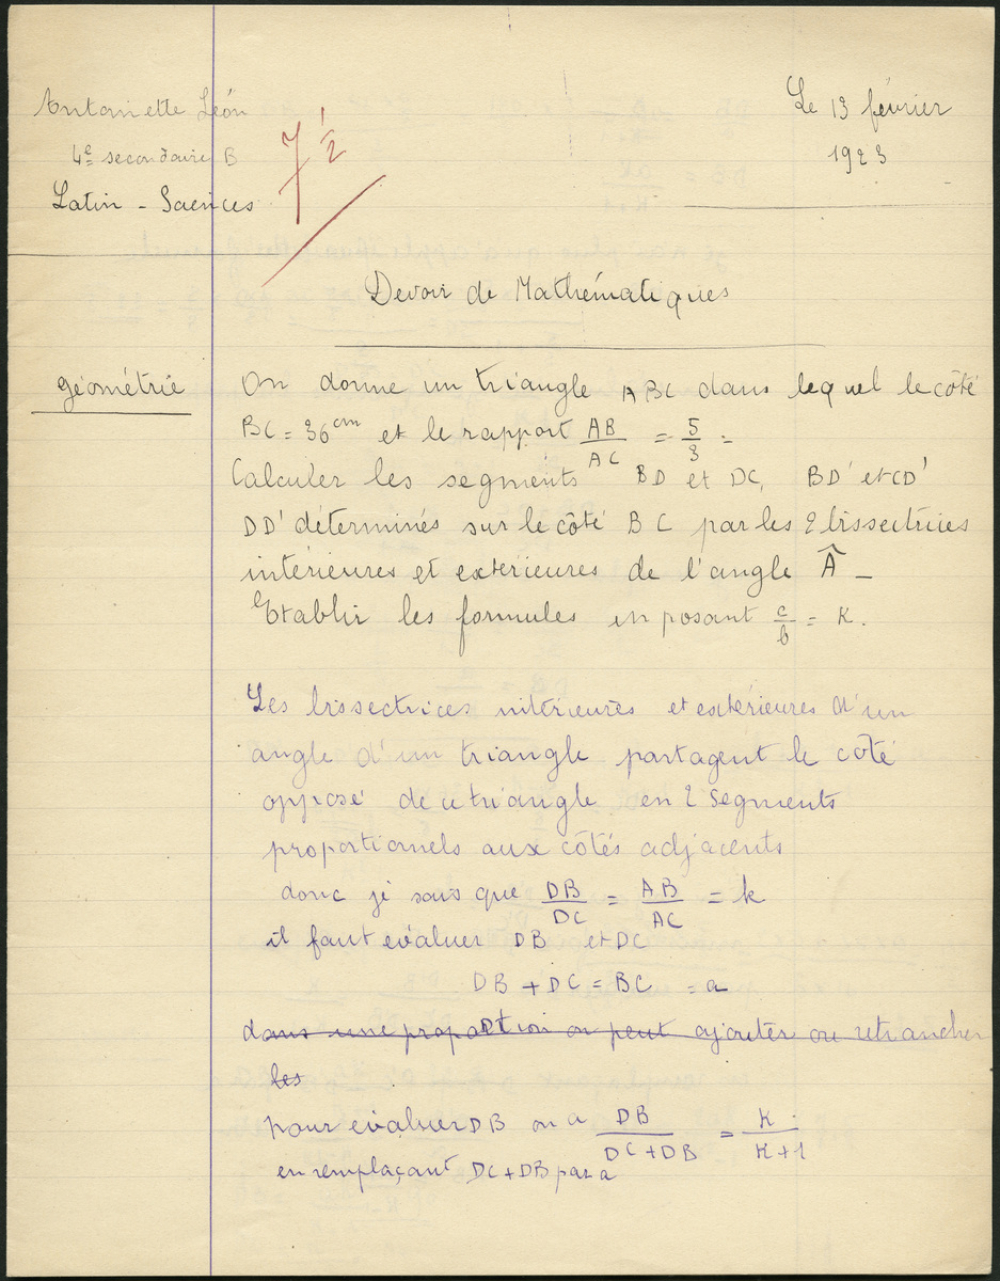 Antoinette León
Le 13 février
1923
4e secondaire B
Latin - Sciences
7 1/2
Devoir de Mathématiques
géométrie
On donne un triangle ABC dans lequel le côté
BC = 36 cm et le rapport AB/AC = 5/3 =
Calculer les segments BD et DC, BD' et CD'
DD' déterminés sur le côté BC par les 2 bissectrices
intérieures et extérieures de l'angle Â -
Etablir les formules en posant c/b = K.
Les bissectrices intérieures et extérieures d'un
angle d'un triangle partagent le côté
opposé de ce triangle en 2 segments
proportionnels aux côtés adjacents
donc je sais que DB/DC = AB/AC = k
il faut évaluer DB et DC
DB + DC = BC = a
dans une proportion on peut ajouter ou retrancher
les
pour évaluer DB on a DB/DC+DB = K/K+1
en remplaçant DC+DB par a